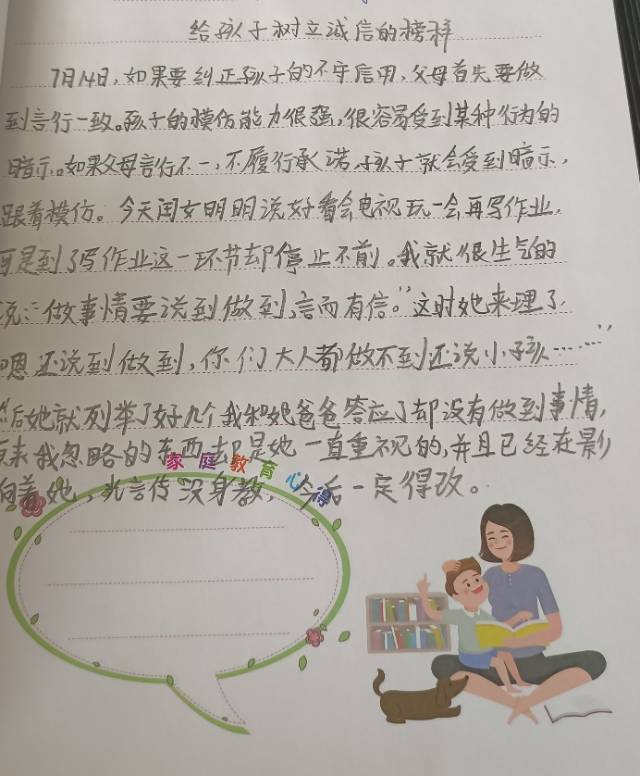 给孩子树立诚信的榜样
7月14日,如果要纠正孩子的不守信用,父母首先要做
到言行一致。孩子的模仿能力很强,很容易受到某种行为的
暗示。如果父母言行不一,不履行承诺,孩子就会受到暗示,
跟着模仿。今天闺女明明说好看会电视玩一会再写作业,
可是到了写作业这一环节却停止不前。我就很生气的
说:“做事情要说到做到,言而有信。”这时她来理了,
嗯还说到做到,你们大人都做不到还说小孩……”
后她就列举了好几个我和她爸爸答应了却没有做到事情,
原来我忽略的东西却是她一直重视的,并且已经在影
响着她,光言传没身教,今后一定得改。
家庭教育心得